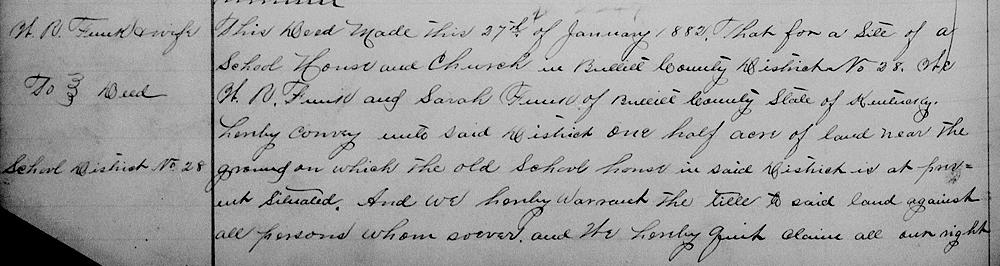 H. R. Funk & wife
To Deed
School District No 28
This Deed Made this 27th of January 1882. That for a Site of a
School House and Church in Bullitt County District No 28. We
H. R. Funk and Sarah Funk of Bullitt County State of Kentucky.
hereby convey unto said District one half acre of land near the
ground on which the old School house in said District is at pres=
ent Situated. And we hereby Warrant the title to said land against
all persons whom soever, and we hereby Quit claim all our right